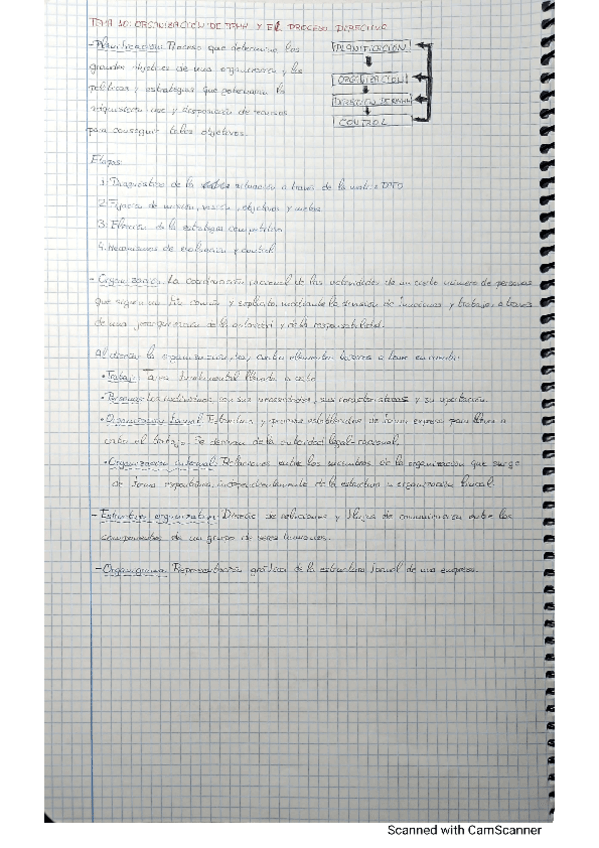 TEMA 10: ORGANIZACIÓN DE Y EL PROCESO DIRECTIVO
- Planificación: Proceso que determina los
grandes objetivos de una organización y las
políticas y estrategias que determinan la
adquisición, uso y disposición de recursos
para conseguir tales objetivos.
PLANIFICACIÓN
ORGANIZACIÓN
DIRECCIÓN
CONTROL
Etapas:
1. Diagnóstico de la situación a través de la matriz DAFO
2. Fijación de misión, visión, objetivos y metas
3. Elección de la estrategia competitiva
4. Mecanismos de evaluación y control
- Organización: La coordinación racional de las actividades de un cierto número de personas
que siguen un fin común y explícito, mediante la división de funciones y trabajo, a través
de una jerarquización de la autoridad y de la responsabilidad.
Al la organización, cuatro elementos básicos a tener en cuenta:
• Trabajo: Tarea fundamental llevada a cabo
• Personas: Los individuos con sus necesidades, sus características y su aportación.
• Organización formal: Estructura y procesos establecidos de forma expresa para llevar a
cabo el trabajo. Se derivan de la autoridad legal-racional.
• Organización informal: Relaciones entre los miembros de la organización que surge
de forma espontánea, independientemente de la estructura u organización formal.
- Estructura organizativa: de relaciones y flujos de comunicación entre los
componentes de un grupo de seres humanos.
- Organigrama: Representación gráfica de la estructura formal de una empresa.
Scanned with CamScanner